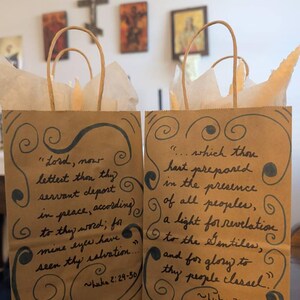 "Lord, now
lettest thou thy
servant depart
in peace, according
to thy word; for
mine eyes have
seen thy salvation
"... which thou
hast prepared
in the presence
of all peoples,
a light for revelation
to the Gentiles,
and for glory to
thy people